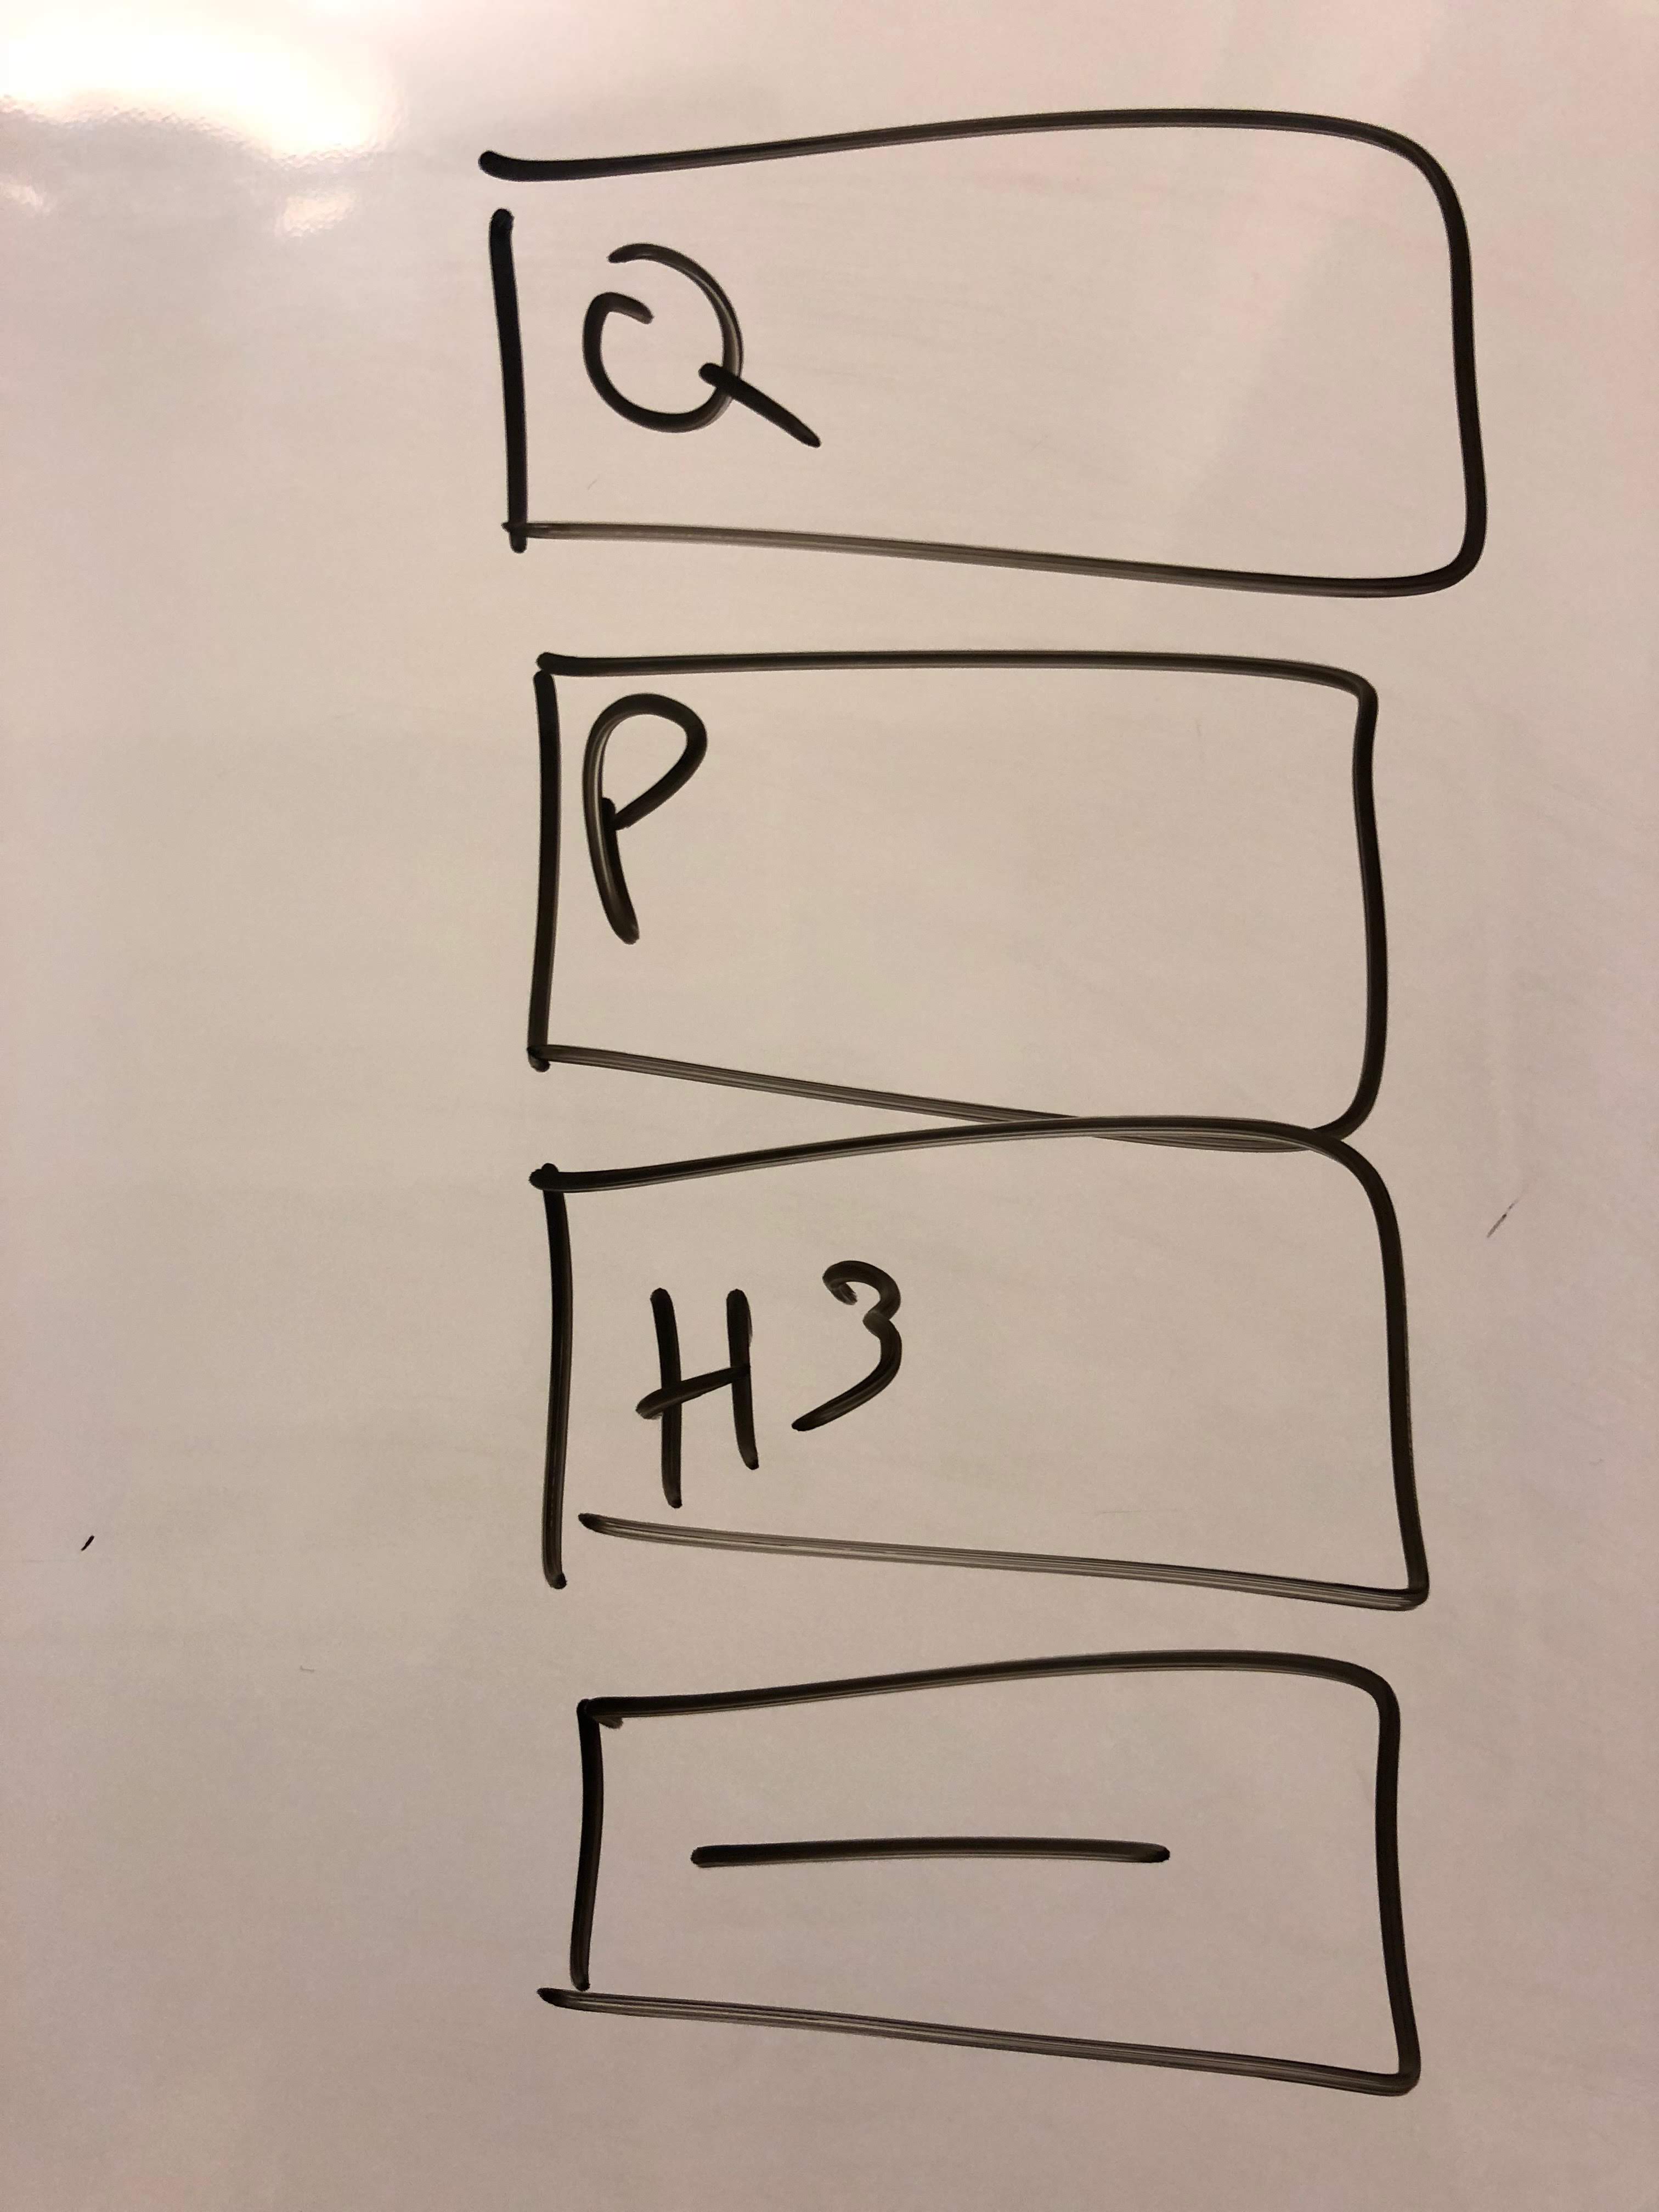 Q
P
H3
—